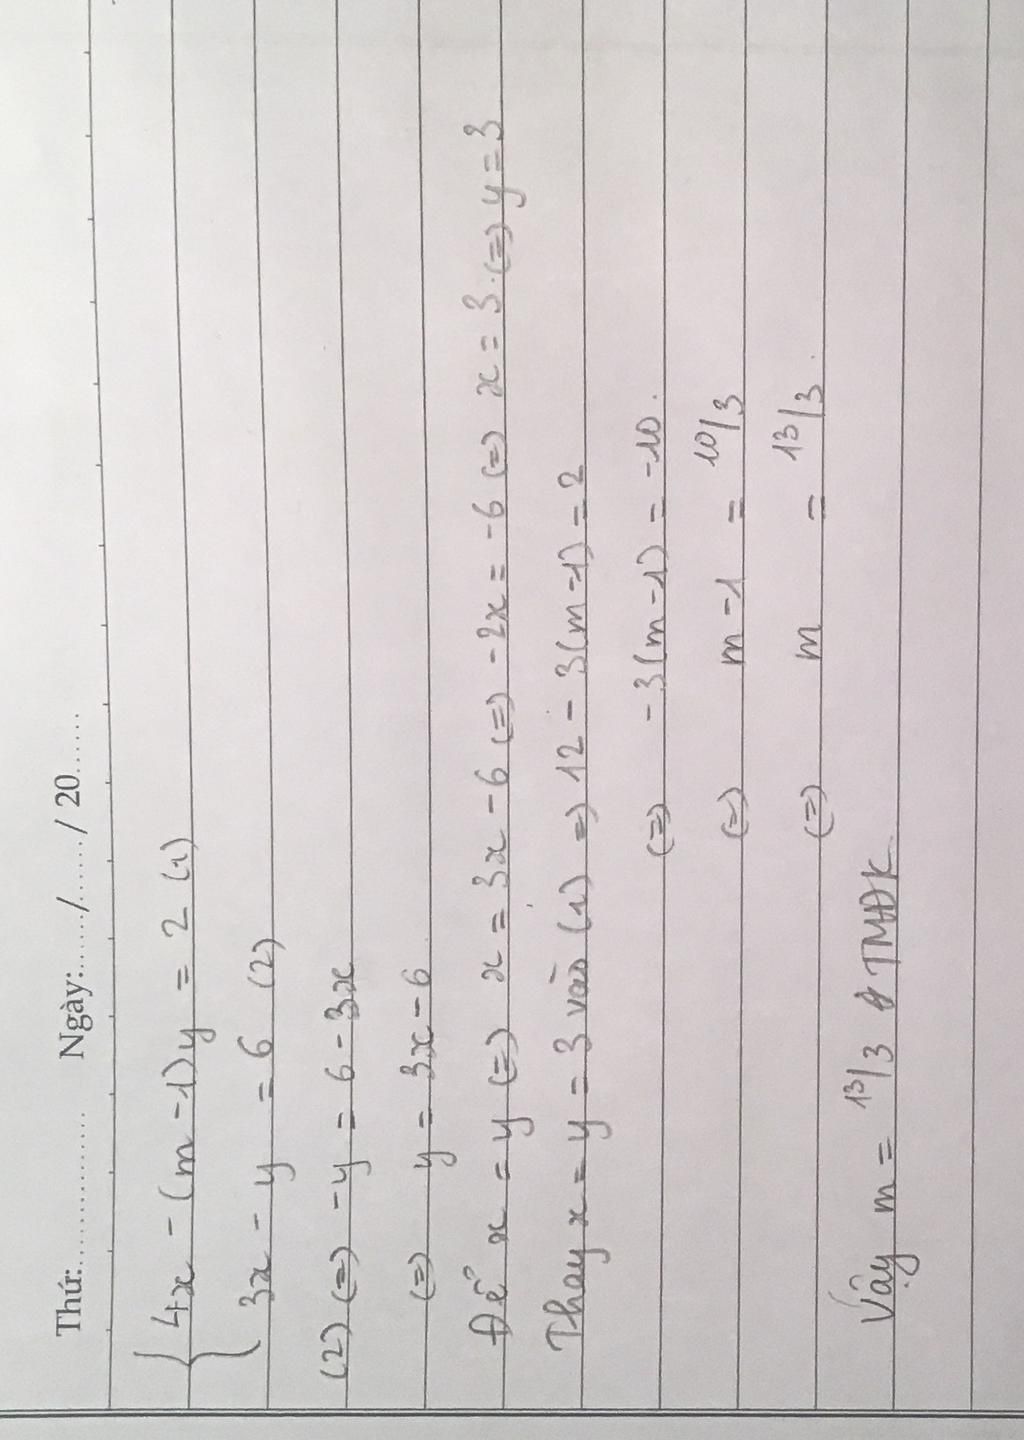 Thứ:............... Ngày:....../....../ 20......
4x - (m - 1)y = 2 (1)
3x - y = 6 (2)
(2) (=) -y = 6 - 3x
(=) y = 3x - 6
Để x = y (=) x = 3x - 6 (=) -2x = -6 (=) x = 3 (=) y = 3
Thay x = y = 3 vào (1) =) 12 - 3(m - 1) = 2
(=) -3(m - 1) = -10.
(=) m - 1 = 10/3
(=) m = 13/3.
Vậy m = 13/3 TMĐK